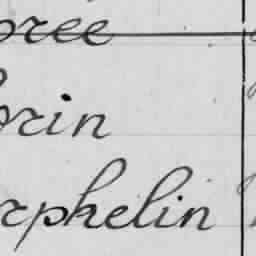 orée
orin
rphelin